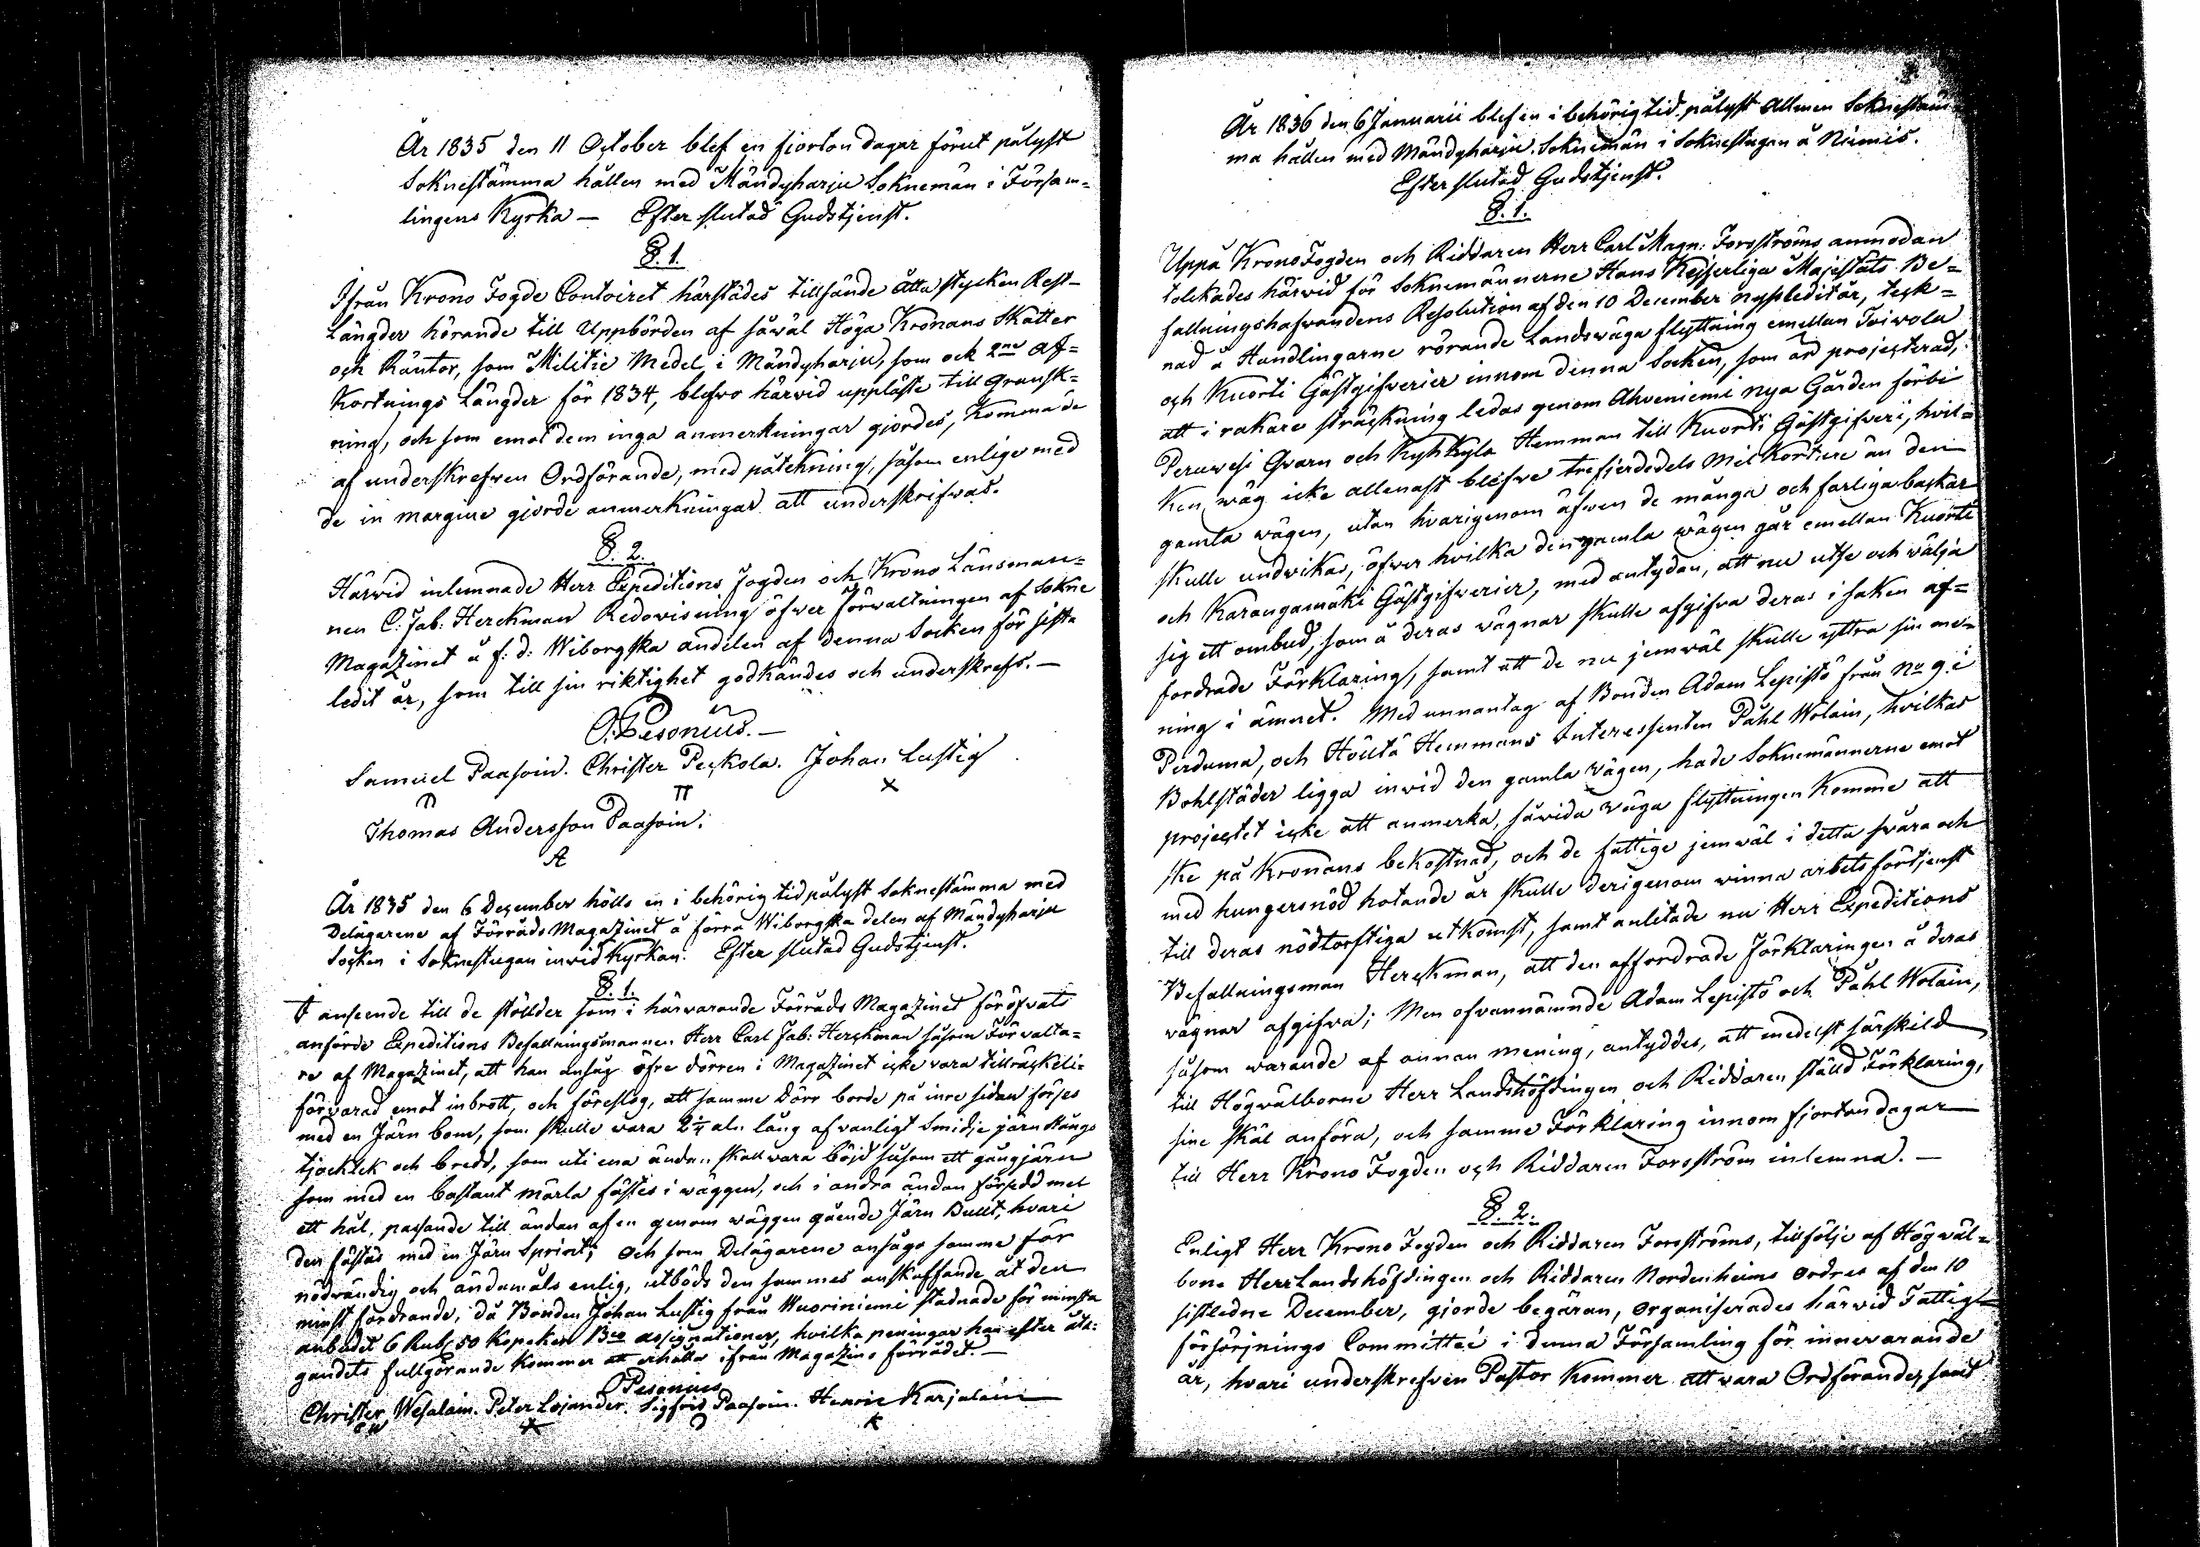 År 1835 den 11 October blef en fjorton dagar förut pålyst
Soknestämma hållen med Mändyharju Soknemän i Försam-
lingens Kyrka — Efter slutad Gudstjenst.
§. 1.
Ifrån Krono Fogde Contoiret härstädes tillsände Åtta stycken Rest-
Längder hörande till Uppbörden af såwäl Höga Kronans Skatter
och Räntor, som Militie Medel i Mändyharju, som ock 2ne Af-
Kortnings Längder för 1834, blefwo härwid uppläste till gransk-
ning, och som emot dem inga anmerkningar gjordes, Komma de
af underskrefwen Ordförande, med påtekning, såsom enlige med
de in margine gjorde anmerkningar att underskrifwas.
§. 2.
Härwid inlemnade Herr Expeditions Fogden och Krono Länsman-
nen C: Jab: Herckman Redovisning öfwer förwaltningen af Sokne
Magazinet å f: d: Wiborgska andelen af denna Socken för sista
ledit år, som till sin riktighet godkändes och underskrefs. —
O. Pesonius. —
Samuel Paasoin. Christer Peckola. Johan Lustig
Thomas Andersson Paasoin.
A
År 1835 den 6 December hölls en i behörig tid pålyst Soknestämma med
Delägarene af Förråds Magazinet å förra Wiborgska delen af Mändyharju
Socken i Soknestugan inwid Kyrkan. Efter slutad Gudstjenst.
§. 1.
I anseende till de stölder som i härwarande Förråds Magazinet föröfvats
anförde Expeditions Befallningsmannen Herr Carl Jab: Herckman såsom Förwalta-
re af Magazinet, att han ansåg öfre dörren i Magazinet icke vara tillräckeli-
förvarad emot inbrott, och föreslog, att samme dörr borde på inre sidan förses
med en Järn bom, som skulle wara 2¼ aln lång af vanligt Smidje järn Stångs
tjocklek och bredd, som uti ena ändan skall vara böjd såsom ett gångjärn
som med en bastant märla fästes i wäggen, och i andra ändan försedd med
ett hål, passande till ändan af en genom wäggen gående Järn Bult, hvari
den fästas med en Järn Sprint; och som Delägarene ansågo samme för
nödvändig och ändamåls enlig, utböds den sammes anskaffande åt den
minst fordrande, då Bonden Johan Lustig från Wuoriniemi stadnade för minsta
anbudet 6 Rub. 50 Kopeken Bco assignationer, hvilka peningar han efter åta-
gandets fullgörande kommer att erhålla ifrån Magazins förrådet. —
O Pesonius
Christer Wesalain. Peter Lojander. Sigfrid Paasoin. Henric Karjalain
År 1836 den 6 Januarii blef en i behörig tid pålyst Allmen Soknestäm-
ma hållen med Mändyharju Soknemän i Soknestugan å Niemis.
Efter slutad Gudstjenst.
§. 1.
Uppå Krono Fogden och Riddaren Herr Carl Magn: Forsströms anmodan
tolckades härwid för Soknemännerne Hans Kejserliga Majestäts Be-
fallningshafvandens Resolution af den 10 December nyssleditår, teck-
nad å Handlingarne rörande Landswäga flyttning emellan Toiwola
och Kuorti Gästgifverier innom denna Socken, som är projecterad,
att i rakare sträckning ledas genom Ahveniemi nya Gården förbi
Peruwesi Qvarn och Kyhkylä Hemman till Kuorti Gästgifveri, hvil-
ken wäg icke allenast blefve trefjerdedels mil kortare än den
gamla wägen, utan hvarigenom äfwen de många och farliga backar
skulle undvikas, öfwer hvilka den gamla wägen går emellan Kuorti
och Karangamäki Gästgifverier, med antydan, att nu utse och wälja
sig ett ombud, som å deras wägnar skulle afgifva deras i saken af-
fordrade Förklaring, samt att de nu jemwäl skulle yttra sin me-
ning i ämnet. Med unnantag af Bonden Adam Lepistö från No 9 i
Perduma, och Höltä Hemmans Interessenten Påhl Wolain, hvilkas
Bohlstäder ligga inwid den gamla wägen, hade Soknemännerne emot
projectet icke att anmerka, såvida wäga flyttningen Komme att
ske på Kronans bekostnad, och de fattige jemwäl i detta svåra och
med hungersnöd hotande år skulle derigenom winna arbetsförtjenst
till deras nödtorftiga utkomst, samt anlitade nu Herr Expeditions
Befallningsman Herckman, att den affordrade Förklaringen å deras
wägnar afgifva; Men ofvannämnde Adam Lepistö och Påhl Wolain,
såsom warande af annan mening, antyddes, att medelst särskild
till Högwälborne Herr Landshöfdingen och Riddaren ställd Förklaring,
sine skäl anföra, och samme Förklaring innom fjorton dagar
till Herr Krono Fogden och Riddaren Forsström inlemna. —
§. 2.
Enligt Herr Krono Fogden och Riddaren Forsströms, tillfölje af Högwäl-
borne Herr Landshöfdingen och Riddaren Nordenheims Ordres af den 10
sistledne December, gjorde begäran, Organiserades härwid Fattig-
försörjnings Committeé i denna Församling för innevarande
år, hvari underskrefven Pastor Kommer att vara Ordförande, samt